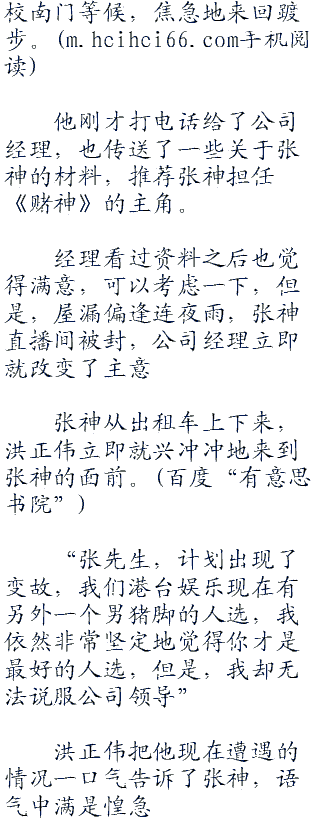 校南门等候，焦急地来回踱
步。(m.hcihci66.com手机阅
读)
他刚才打电话给了公司
经理，也传送了一些关于张
神的材料，推荐张神担任
《赌神》的主角。
经理看过资料之后也觉
得满意，可以考虑一下，但
是，屋漏偏逢连夜雨，张神
直播间被封，公司经理立即
就改变了主意
张神从出租车上下来，
洪正伟立即就兴冲冲地来到
张神的面前。(百度“有意思
书院”)
“张先生，计划出现了
变故，我们港台娱乐现在有
另外一个男猪脚的人选，我
依然非常坚定地觉得你才是
最好的人选，但是，我却无
法说服公司领导”
洪正伟把他现在遭遇的
情况一口气告诉了张神，语
气中满是惶急